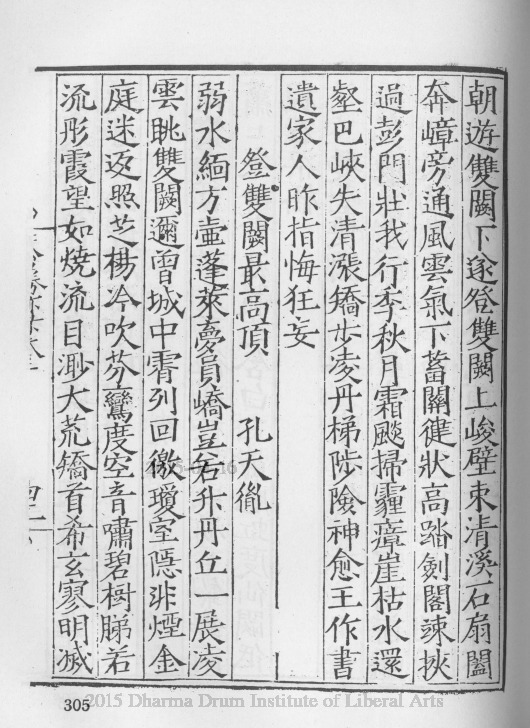 朝遊雙闕下遂登雙闕上峻壁束清溪石扇闔
奔嶂旁通風雲氣下蓄關徤狀高踏劍閣竦挾
過彭門壯我行季秋月霜颷掃霾瘴崖枯水還
壑巴峽失清漲矯步凌丹梯陟險神愈王作書
遺家人昨指悔狂妄
登雙闕最高頂 孔天胤
弱水緬方壷蓬萊夢員嶠豈若升丹丘一展凌
雲眺雙闕邇曾城中霄列回徼瓊室隠非煙金
庭迷返照芝楊冷吹芬鸞度空音嘯碧樹睇若
流彤霞望如燒流目渺大荒矯首希玄寥明滅
305
2015 Dharma Drum Institute of Liberal Arts